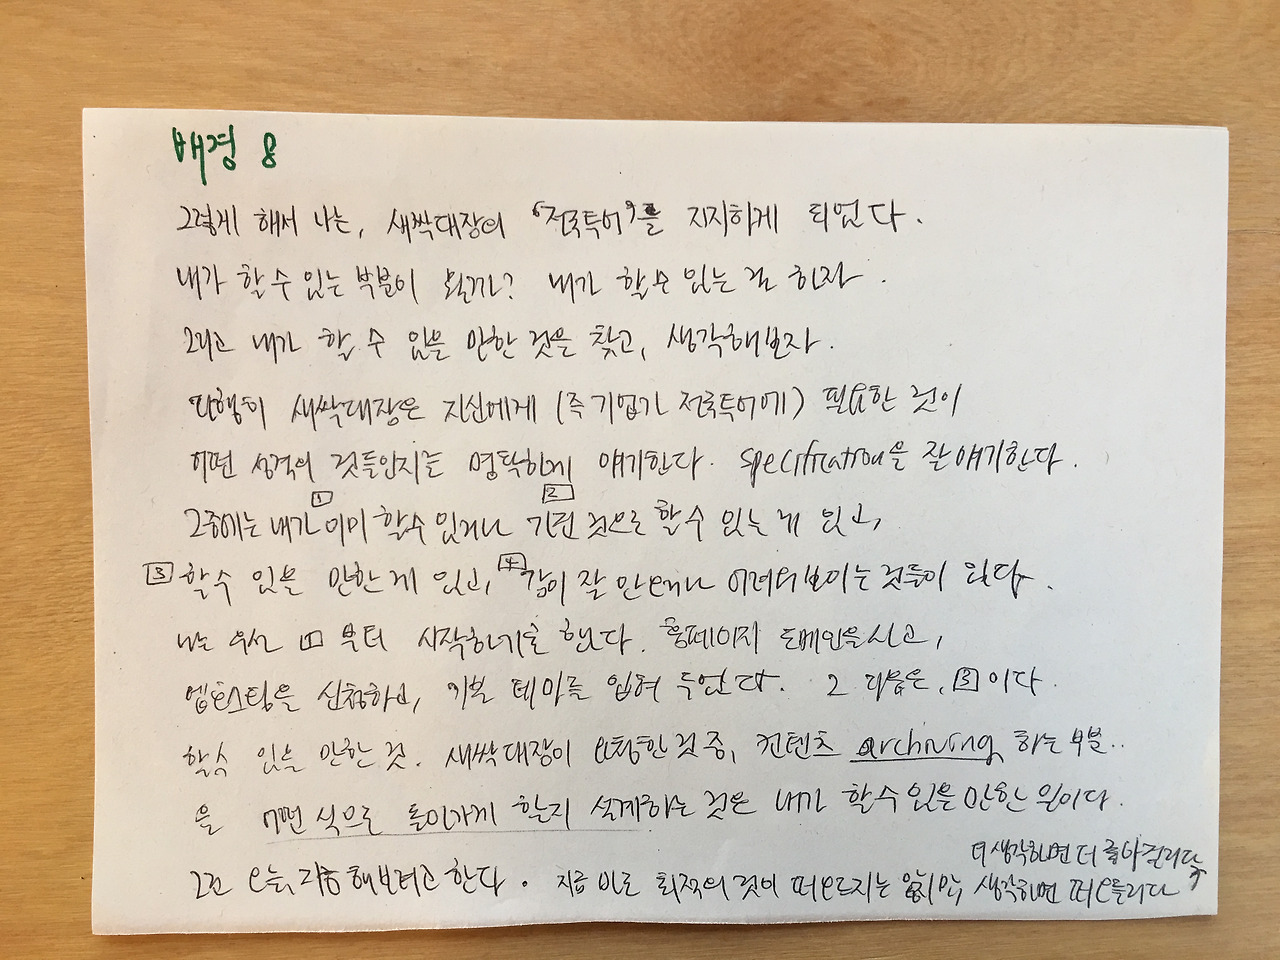 배경 8
그렇게 해서 나는, 새싹대장의 '전국투어'를 지지하게 되었다.
내가 할 수 있는 부분이 뭘까? 내가 할 수 있는 걸 하자.
그리고 내가 할 수 있을 만한 것을 찾고, 생각해보자.
다행히 새싹대장은 자신에게 (즉 기업가 전국투어에) 필요한 것이
어떤 성격의 것들인지는 명확하게 얘기한다. specification을 잘 얘기한다.
그중에는 내가 1 이미 할 수 있거나 2 가진 것으로 할 수 있는 게 있고,
3 할 수 있을 만한 게 있고, 4 감이 잘 안오거나 어려워 보이는 것들이 있다.
나는 우선 1 부터 시작하기로 한다. 홈페이지 도메인을 사고,
웹호스팅을 신청하고, 기본 테마를 입혀 두었다. 그 다음은, 3 이다.
할 수 있을 만한 것. 새싹대장이 요청한 것 중, 컨텐츠 archiving 하는 부분..
을 어떤 식으로 돌아가게 할지 설계하는 것은 내가 할 수 있을 만한 일이다.
그건 오늘, 지금 해보려고 한다. 지금 바로 최적의 것이 떠오르지는 않지만, 생각하면 떠오를리다
더 생각하면 더 좋아질리다